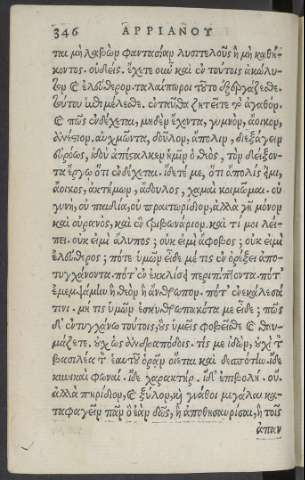 346 ΑΡΡΙΑΝΟΥ
ται μὴ λαβὼν φαντασίαν λυσιτελοῦς ἢ μὴ καθή-
κοντος. οὐδείς. ἔχετε οὖν καὶ ἐν τούτοις ἀκώλυ-
τον καὶ ἐλεύθερον. ταλαίπωροι τοῦτο ἐξεργάζεσθε.
τούτου ἐπιμέλεσθε. ἐνταῦθα ζητεῖτε τὸ ἀγαθόν.
καὶ πῶς ἐνδέχεται, μηδὲν ἔχοντα, γυμνὸν, ἄοικον,
ἀνέστιον, αὐχμῶντα, δοῦλον, ἄπολιν, διεξάγειν
εὐρόως, ἰδοὺ ἀπέσταλκεν ἡμῖν ὁ θεὸς, τὸν δείξον-
τα ἔργῳ ὅτι ἐνδέχεται. ἴδετέ με, ὅτι ἄπολίς εἰμι,
ἄοικος, ἀκτήμων, ἄδουλος, χαμαὶ κοιμῶμαι. οὐ
γυνὴ, οὐ παιδία, οὐ πραιτωρίδιον, ἀλλὰ γῆ μόνον
καὶ οὐρανὸς, καὶ ἓν τριβωνάριον. καὶ τί μοι λεί-
πει. οὐκ εἰμὶ ἄλυπος; οὐκ εἰμὶ ἄφοβος; οὐκ εἰμὶ
ἐλεύθερος; πότε ὑμῶν εἶδέ με τις ἐν ὀρέξει ἀπο-
τυγχάνοντα· πότ' ἐν ἐκκλίσει περιπίπτοντα· πότ'
ἐμεμψάμην ἢ θεὸν ἢ ἄνθρωπον. πότ' ἐνεκάλεσά
τινι. μή τις ὑμῶν ἐσκυθρωπακότα με εἶδε; πῶς
δ' ἐντυγχάνω τούτοις, οὓς ὑμεῖς φοβεῖσθε καὶ θαυ-
μάζετε. οὐχ ὡς ἀνδραπόδοις. τίς με ἰδὼν, οὐχὶ τὸν
βασιλέα τὸν ἑαυτοῦ ὁρᾶν οἴεται καὶ δεσπότην. ἴδε
κυνικαὶ φωναί. ἴδε χαρακτήρ. ἴδ' ἐπιβολή. οὔ.
ἀλλὰ πηρίδιον, καὶ ξύλον, καὶ γνάθοι μεγάλαι κα-
ταφαγεῖν πᾶν ὃ ἐὰν δῶς, ἢ ἀποθησαυρίσαι, ἢ τοῖς
ἀπαν